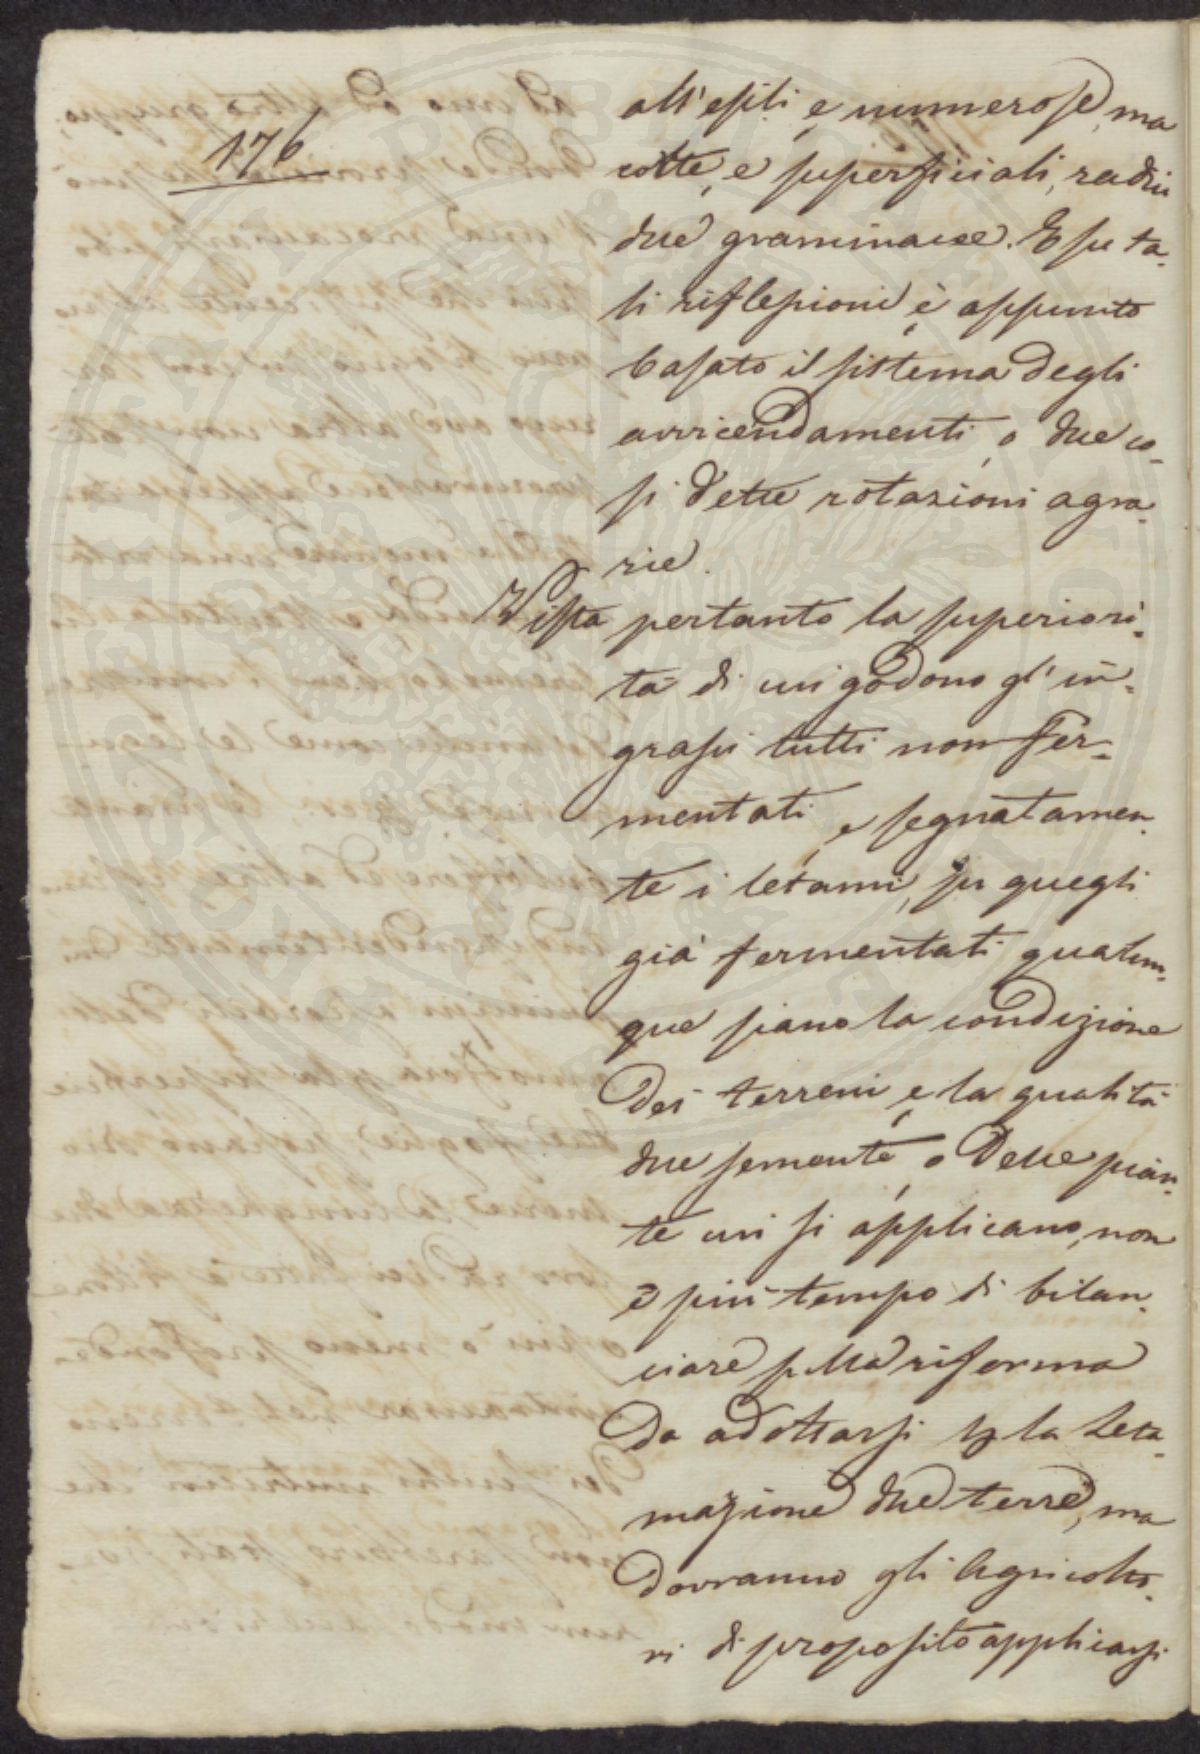 176
all'esili, e numerose, ma
corte, e superficiali, radici
delle graminacee. E su ta-
li riflessioni è appunto
basato il sistema degli
avvicendamenti, o delle co-
si dette rotazioni agra-
rie.
Vista pertanto la superiori-
tà di cui godono gl'in-
grassi tutti non fer-
mentati, e segnatamen-
te i letami, su quegli
già fermentati qualun-
que siano la condizione
dei terreni, e la qualità
delle semente, o delle pian-
te cui si applicano, non
è più tempo di bilan-
ciare sulla riforma
da adottarsi per la Leta-
mazione delle terre, ma
dovranno gli Agricolto-
ri di proposito applicarsi